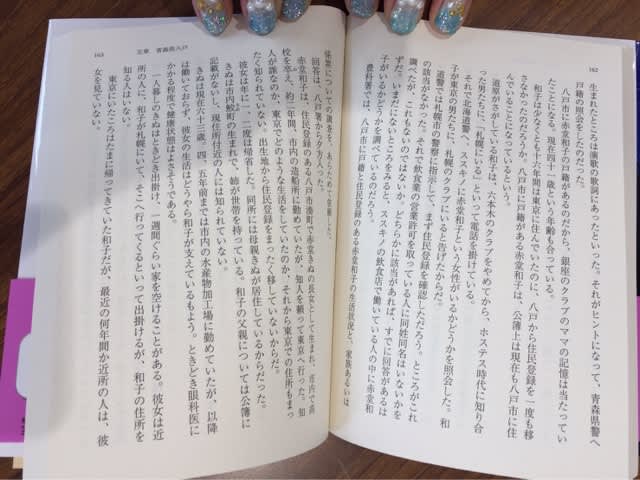 162
生まれたところは演歌の歌詞にあったといった。それがヒントになって、青森県警へ
戸籍の照会をしたのだった。
八戸市に赤堂和子の戸籍があるのだから、銀座のクラブのママの記憶は当たってい
たことになる。現在四十一歳という年齢も合っている。
和子は少なくとも十六年間は東京に住んでいたのに、八戸から住民登録を一度も移
さなかったのだろうか。八戸市に戸籍がある赤堂和子は、公簿上は現在も八戸市に住
んでいることになっているという。
道原がさがしている和子は、六本木のクラブをやめてから、ホステス時代に知り合
った男たちに、「札幌にいる」といって電話を掛けている。
それで北海道警へ、ススキノに赤堂和子という女性がいるかどうかを照会した。和
子が東京の男たちに、札幌のクラブにいると告げたからだ。
道警では札幌市の警察に指示して、まず住民登録を確認しただろう。ところがこれ
の該当がなかった。それで飲食業の営業許可を取っている人に同姓同名はいないかを
調べたが、これもないのではないか。どちらかに該当があれば、すでに回答があるは
ずだ。いまだにないところをみると、ススキノの飲食店で働いている人の中に赤堂和
子がいるかどうかを調べているのだろう。
豊科署では、八戸市に戸籍と住民登録のある赤堂和子の生活状況と、家族あるいは
163
五章 青森県八戸
係累についての調査を、あらためて依頼した。
回答は、八戸署から夕方入った。
赤堂和子は、住民登録のある八戸市湊町で赤堂きぬの長女として生まれ、市内で高
校を卒え、約二年間、市内の造船所に勤めていたが、知人を頼って東京へ行った。知
人が誰なのか、東京でどのような生活をしていたのか、それから東京での住所もまっ
たく知られていない。出生地から住民登録をまったく移していないからだ。
彼女は年に一、二度は帰省した。同所には母親きぬが居住しているからだった。
きぬは市内鮫町の生まれで、姉が世帯を持っている。和子の父親については公簿に
記載がないし、現住所付近の人には知られていない。
きぬは現在六十三歳。四、五年前までは市内の水産物加工場に勤めていたが、以降
は働いておらず、彼女の生活はどうやら和子が支えているもよう。ときどき眼科医に
かかる程度で、健康状態はよさそうである。
一人暮しのきぬはときどき出掛け、一週間ぐらい家を空けることがある。彼女は近
所の人に、和子が札幌にいて、そこへ行ってくるといって出掛けるが、和子の住所を
知る人はいない。
東京にいたころはたまに帰ってきていた和子だが、最近の何年間か近所の人は、彼
女を見ていない。